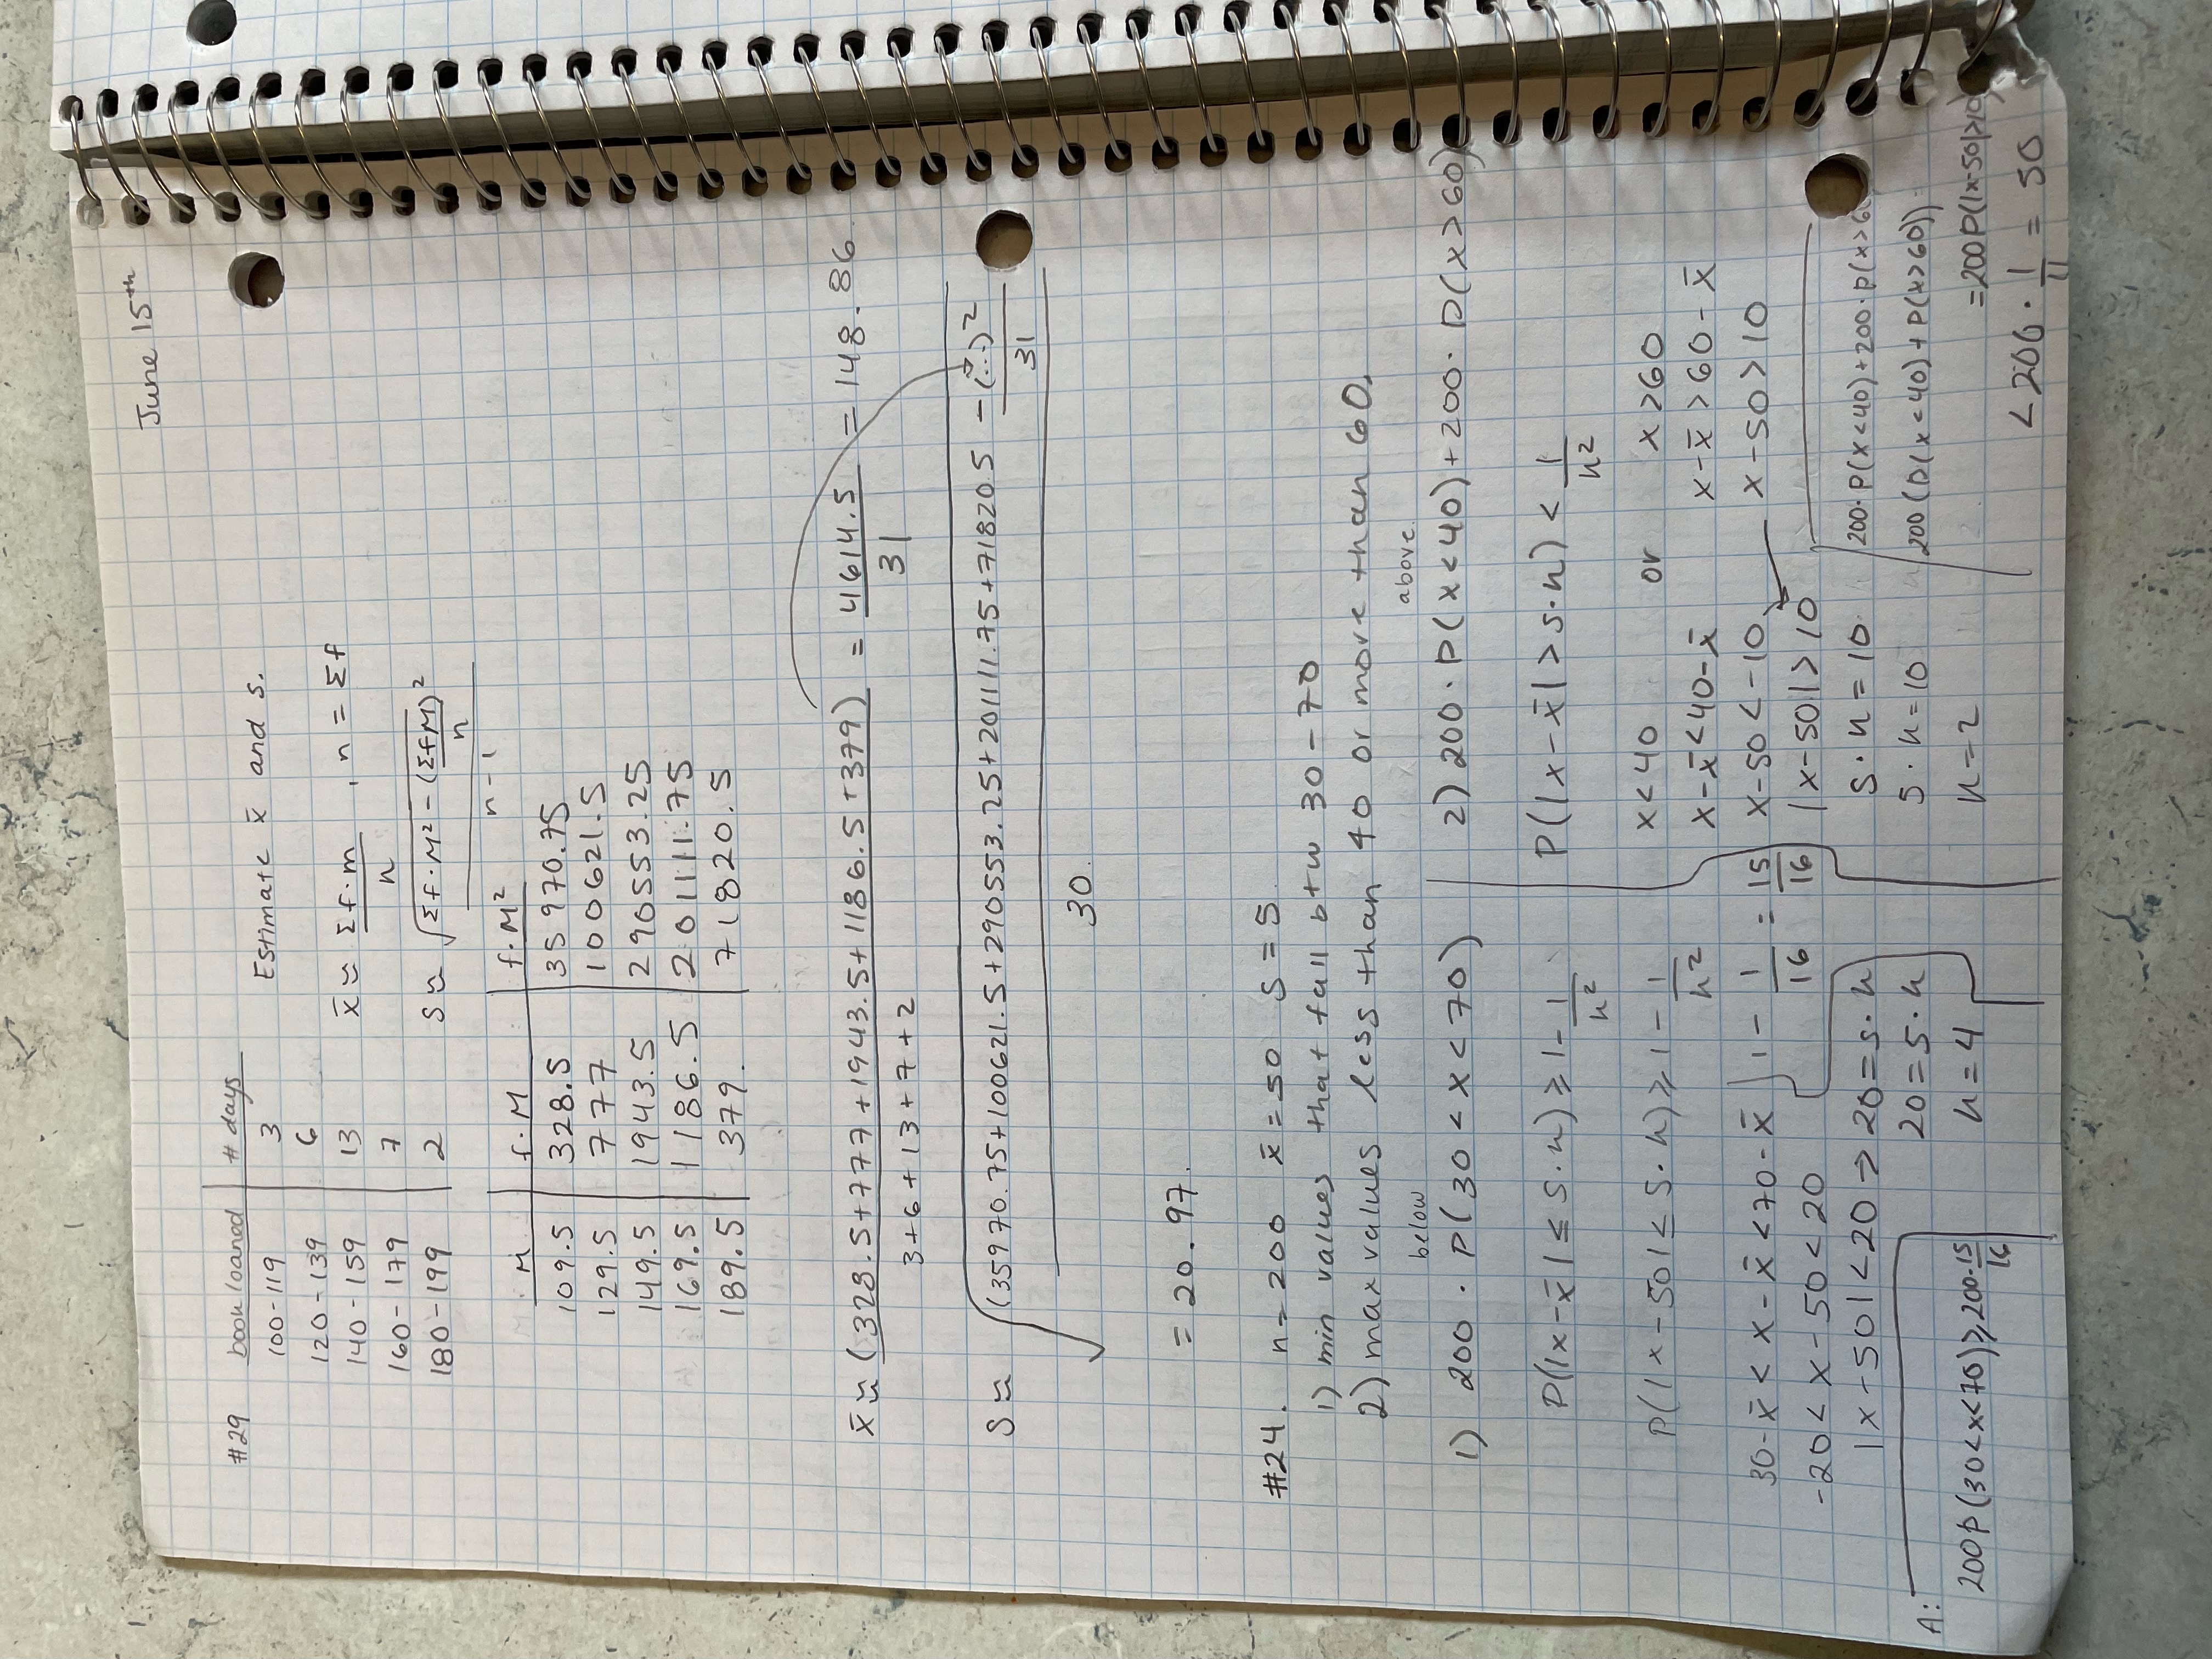 June 15th
#29 book loaned # days
100-119 3
120-139 6
140-159 13
160-179 7
180-199 2
Estimate x̄ and s.
x̄ ≈ Σf·m / n , n = Σf
s ≈ √((Σf·M² - (ΣfM)²/n) / (n-1))
M f·M f·M²
109.5 328.5 35970.75
129.5 777 100621.5
149.5 1943.5 290553.25
169.5 1186.5 201111.75
189.5 379. 71820.5
x̄ ≈ (328.5+777+1943.5+1186.5+379) / 3+6+13+7+2 = 4614.5 / 31 = 148.86
s ≈ √((35970.75+100621.5+290553.25+201111.75+71820.5 - (...)²/31) / 30.)
= 20.97.
#24. n=200 x̄=50 s=5
1) min values that fall btw 30-70
2) max values less than 40 or more than 60.
below
1) 200 · P(30<x<70)
P(|x-x̄| ≤ s·k) ≥ 1 - 1/k²
P(|x-50| ≤ 5·k) ≥ 1 - 1/k²
30-x̄ < x-x̄ < 70-x̄
-20 < x-50 < 20
|x-50| < 20 → 20 = s·k
20 = 5·k
k = 4
1 - 1/16 = 15/16
A:
200P(30<x<70) ≥ 200·15/16
above.
2) 200 · P(x<40) + 200 · P(x>60)
P(|x-x̄| > s·k) < 1/k²
x<40 or x>60
x-x̄<40-x̄ x-x̄>60-x̄
x-50<-10 x-50>10
|x-50|>10
s·k=10
5·k=10
k=2
200·P(x<40)+200·P(x>6
200(P(x<40)+P(x>60))
=200P(|x-50|>10)
<200· 1/4 = 50